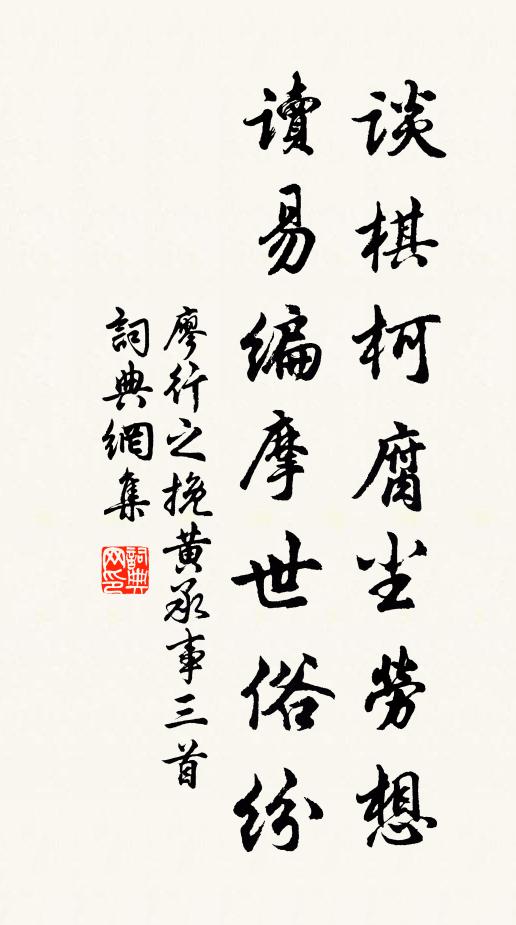 谈棋柯腐尘劳想
讀易编摩世俗纷
廖行之挽黄承事三首
詞典網集
詞典网印